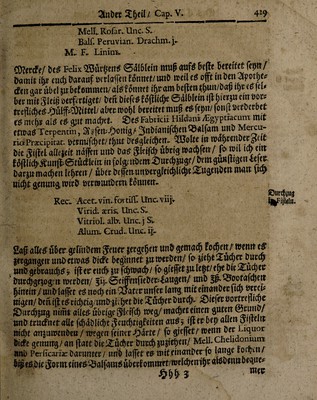 Ander Theil / Cap. V. 429
Mell. Rosar. Unc. S.
Bals. Peruvian. Drachm. j.
M. F. Linim.
Mercke / des Felix Würtzens Sälblein muß aufs beste bereitet seyn /
damit ihr euch darauf verlassen könnet / und weil es offt in den Apothe-
cken gar übel zu bekommen / als könnet ihr am besten thun / daß ihr es sel-
ber mit Fleiß verfertiget / deñ dieses köstliche Sälblein ist hierzu ein vor-
treffliches Hülff-Mittel aber wohl bereitet muß es seyn / sonst verderbet
es mehr als es gut machet. Des Fabricii Hildani Ægyptiacum mit
etwas Terpentin, Rosen-Honig / Indianischen Balsam und Mercu-
rio Præcipitat. vermischet / thut desgleichen. Wolte in währender Zeit
die Fistel allezeit nässen und das Fleisch übrig wachsen / so wil ich ein
köstlich Kunst-Stücklein in folgendem Durchzug / dem günstigen Leser
darzu machen lehren / über dessen unvergleichliche Tugenden man sich
nicht genung wird verwundern können.
Durchzug
Fistula.
Rec. Acet. vin. fortiss. Unc. viij.
Virid. æris, Unc. S.
Vitriol. alb. Unc. j S.
Alum. Crud. Unc. ij.
Laß alles über gelindem Feuer zergehen und gemach kochen / wenn es
zergangen und etwas dicke beginnet zu werden / so ziehe Tücher durch
und gebrauchs; ist er euch zu schwach / so giesset zu letzt / ehe die Tücher
durchgezogen werden / Seiffensieder-Laugen / und Bootaschen
hinein / und lasset es noch ein Vater unser lang mit einander sich verei-
nigen / deñ ist es richtig und ziehet die Tücher durch. Dieser vortreffliche
Durchzug nimt alles übrige Fleisch weg / machet einen guten Grund /
und trucknet alle schädliche Feuchtigkeiten aus; ist er bey allen Fisteln
nicht anzuwenden / wegen seiner Härte / so giesset / wenn der Liquor
dicke genung / an statt die Tücher durch zuziehen / Mell. Chelidonium
und Persicariæ darunter / und lasset es mit einander so lange kochen /
biß es die Form eines Balsams überkommet / welchen ihr alsdenn beque-
Hhh 3 mer